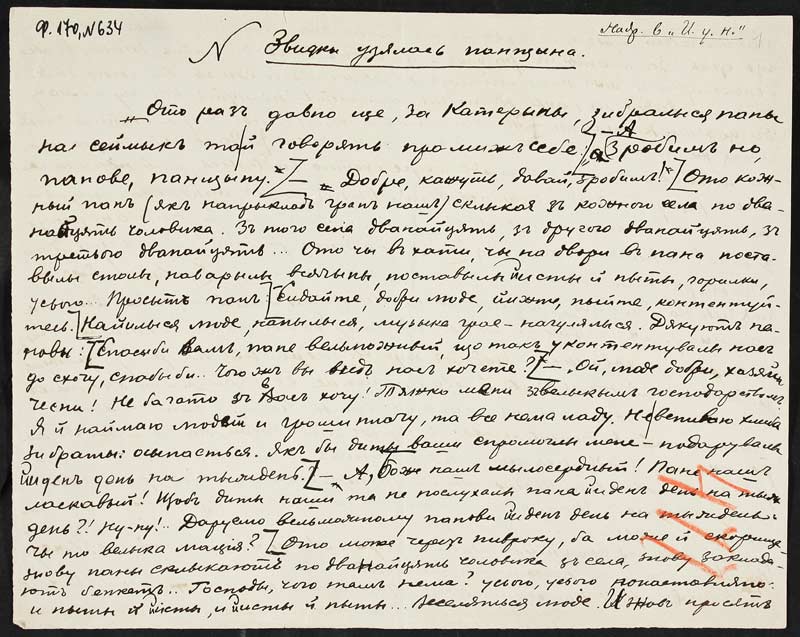 Ф. 170, N 634
Надр. в „И. у. н."
N Звидкы узялась панщына.
„Ото разъ давно ще, за Катерыны, зибралыся паны
на сеймыкъ той говорять промижъ себе: — А зробимъ но,
панове, панщыну. — „Добре, кажуть, давай, зробимъ!" Ото кож-
ный панъ (якъ напрыкладъ грапъ нашъ) склыкая зъ кожного села по два-
найцять чоловика. Зъ того села дванайцять, зъ другого дванайцять, зъ
третього дванайцять... Ото чы въ хати, чы на двори въ пана поста-
вылы столы, наварылы всячыны, поставылы йисты й пыты, горилкы,
усього... Просыть панъ: Сидайте, добри люде, йижте, пыйте, контентуй-
тесь. Найилыся люде, напылыся, музыка грае – нагулялься. Дякують па-
новы: Спасыби вамъ, пане вельможный, що такъ уконтентувалы насъ
до схочу, спасыби.. Чого жъ вы видъ насъ хочете? — „Ой, люде добри, хазяйи
чесни! Не багато зъ васъ хочу! Тяжко мени зъ велыкымъ господарствомъ.
Я й наймаю людей и гроши плачу, та все нема ладу. Не вспиваю хлиба
зибраты: осыпається. Якъ бы диты ваши спромоглы мене – подарувалы
йиденъ день на тыждень. — А, Боже нашъ мылосердный! Пане нашъ
ласкавый! Щобъ диты наши та не послухалы пана йиденъ день на тыж-
день?! Ну-ну!.. Даруемо вельможному панови йиденъ день на тыждень.
Чы то велыка мація? Ото може черезъ пивроку, ба може й скорише
знову паны склыкають по дванайцять чоловика зъ села, знову заклада-
ють бенкетъ.. Господы, чого тамъ нема? усього, усього понаставляно:
и пыты й йисты, и йисты й пыты... Веселяться люде. И знов просять